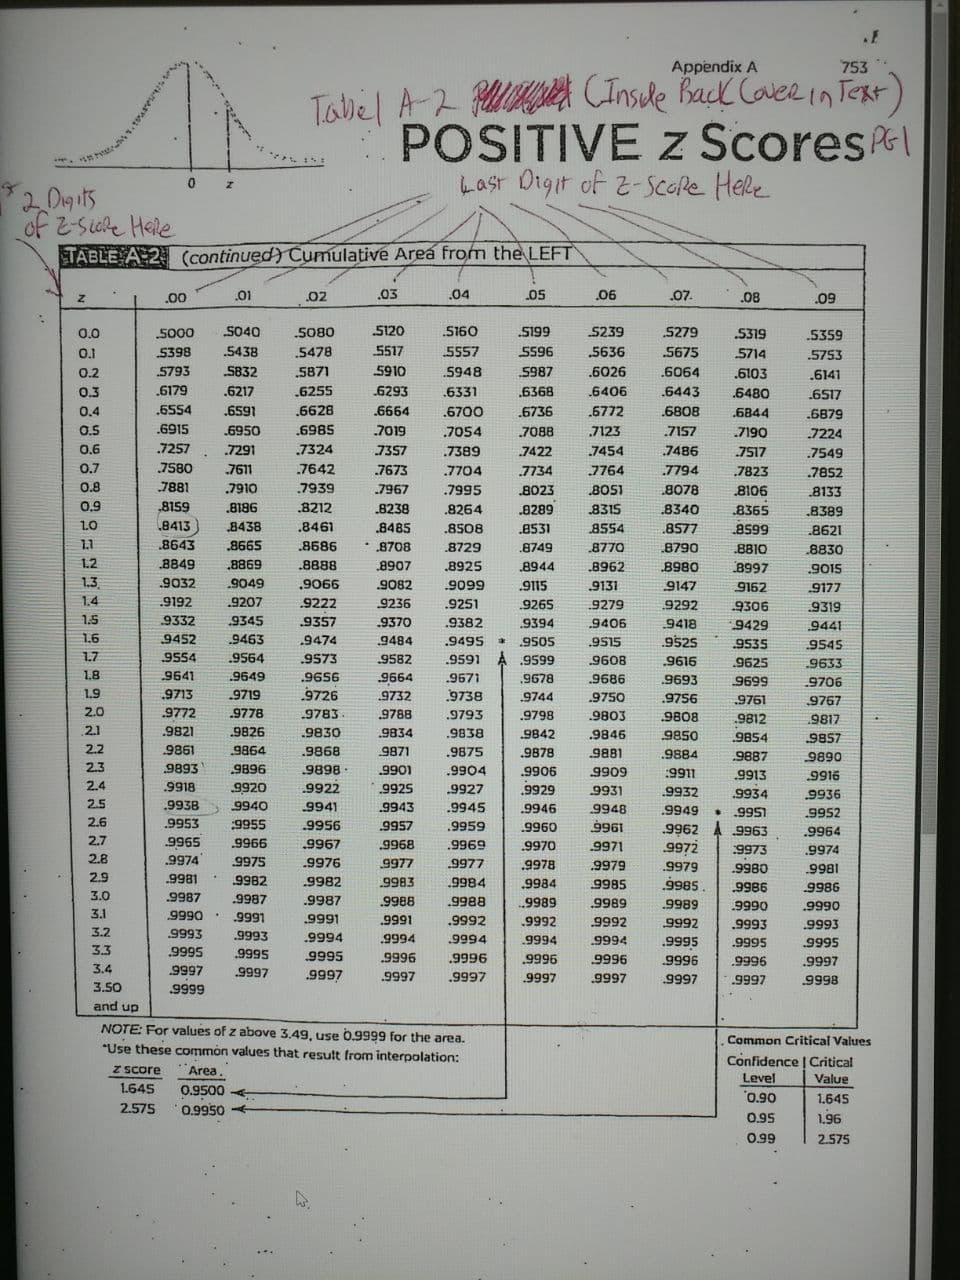 Appendix A 753
Tabel A-2 (Inside Back Cover in Text)
POSITIVE z Scores PG 1
Last Digit of Z-Score Here
0 z
2 Digits
of Z-Score Here
TABLE A-2 (continued) Cumulative Area from the LEFT
z .00 .01 .02 .03 .04 .05 .06 .07 .08 .09
0.0 .5000 .5040 .5080 .5120 .5160 .5199 .5239 .5279 .5319 .5359
0.1 .5398 .5438 .5478 .5517 .5557 .5596 .5636 .5675 .5714 .5753
0.2 .5793 .5832 .5871 .5910 .5948 .5987 .6026 .6064 .6103 .6141
0.3 .6179 .6217 .6255 .6293 .6331 .6368 .6406 .6443 .6480 .6517
0.4 .6554 .6591 .6628 .6664 .6700 .6736 .6772 .6808 .6844 .6879
0.5 .6915 .6950 .6985 .7019 .7054 .7088 .7123 .7157 .7190 .7224
0.6 .7257 .7291 .7324 .7357 .7389 .7422 .7454 .7486 .7517 .7549
0.7 .7580 .7611 .7642 .7673 .7704 .7734 .7764 .7794 .7823 .7852
0.8 .7881 .7910 .7939 .7967 .7995 .8023 .8051 .8078 .8106 .8133
0.9 .8159 .8186 .8212 .8238 .8264 .8289 .8315 .8340 .8365 .8389
1.0 .8413 .8438 .8461 .8485 .8508 .8531 .8554 .8577 .8599 .8621
1.1 .8643 .8665 .8686 .8708 .8729 .8749 .8770 .8790 .8810 .8830
1.2 .8849 .8869 .8888 .8907 .8925 .8944 .8962 .8980 .8997 .9015
1.3 .9032 .9049 .9066 .9082 .9099 .9115 .9131 .9147 .9162 .9177
1.4 .9192 .9207 .9222 .9236 .9251 .9265 .9279 .9292 .9306 .9319
1.5 .9332 .9345 .9357 .9370 .9382 .9394 .9406 .9418 .9429 .9441
1.6 .9452 .9463 .9474 .9484 .9495 * .9505 .9515 .9525 .9535 .9545
1.7 .9554 .9564 .9573 .9582 .9591 .9599 .9608 .9616 .9625 .9633
1.8 .9641 .9649 .9656 .9664 .9671 .9678 .9686 .9693 .9699 .9706
1.9 .9713 .9719 .9726 .9732 .9738 .9744 .9750 .9756 .9761 .9767
2.0 .9772 .9778 .9783 .9788 .9793 .9798 .9803 .9808 .9812 .9817
2.1 .9821 .9826 .9830 .9834 .9838 .9842 .9846 .9850 .9854 .9857
2.2 .9861 .9864 .9868 .9871 .9875 .9878 .9881 .9884 .9887 .9890
2.3 .9893 .9896 .9898 .9901 .9904 .9906 .9909 .9911 .9913 .9916
2.4 .9918 .9920 .9922 .9925 .9927 .9929 .9931 .9932 .9934 .9936
2.5 .9938 .9940 .9941 .9943 .9945 .9946 .9948 .9949 * .9951 .9952
2.6 .9953 .9955 .9956 .9957 .9959 .9960 .9961 .9962 .9963 .9964
2.7 .9965 .9966 .9967 .9968 .9969 .9970 .9971 .9972 .9973 .9974
2.8 .9974 .9975 .9976 .9977 .9977 .9978 .9979 .9979 .9980 .9981
2.9 .9981 .9982 .9982 .9983 .9984 .9984 .9985 .9985 .9986 .9986
3.0 .9987 .9987 .9987 .9988 .9988 .9989 .9989 .9989 .9990 .9990
3.1 .9990 .9991 .9991 .9991 .9992 .9992 .9992 .9992 .9993 .9993
3.2 .9993 .9993 .9994 .9994 .9994 .9994 .9994 .9995 .9995 .9995
3.3 .9995 .9995 .9995 .9996 .9996 .9996 .9996 .9996 .9996 .9997
3.4 .9997 .9997 .9997 .9997 .9997 .9997 .9997 .9997 .9997 .9998
3.50 .9999
and up
NOTE: For values of z above 3.49, use 0.9999 for the area.
*Use these common values that result from interpolation:
z score Area
1.645 0.9500
2.575 0.9950
Common Critical Values
Confidence Critical
Level Value
0.90 1.645
0.95 1.96
0.99 2.575